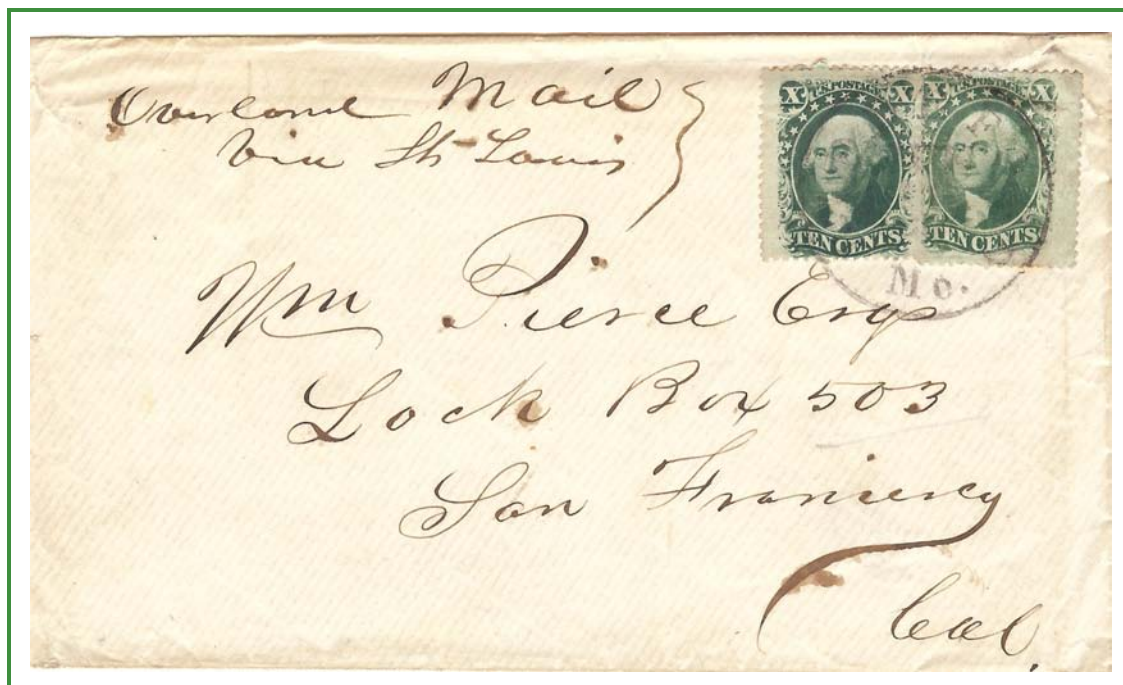 Overland Mail
Via St Louis
X U.S. POSTAGE X
TEN CENTS
X U.S. POSTAGE X
TEN CENTS
Mo.
Wm Pierce Esqr
Lock Box 503
San Francisco
Cal.